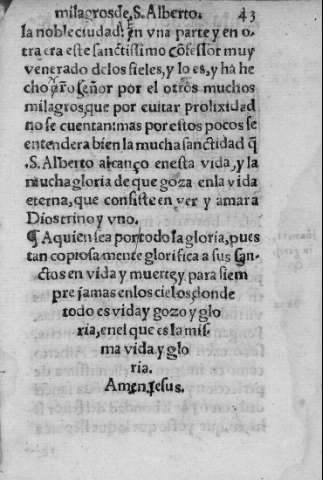 milagros de .S. Alberto. 43
la noble ciudad: en vna parte y en o-
tra era este sanctissimo cõfessor muy
venerado de los fieles, y lo es, y ha he
cho ñro señor por el otros muchos
milagros, que por euitar prolixidad
no se cuentan: mas por estos pocos se
entendera bien la mucha sanctidad q̃
.S. Alberto alcanço en esta vida, y la
mucha gloria de que goza en la vida
eterna, que consiste en ver y amar a
Dios trino y vno.
¶ A quien sea por todo la gloria, pues
tan copiosamente glorifica a sus san-
ctos en vida y muerte, y para siem
pre jamas en los cielos, donde
todo es vida y gozo y glo
ria, en el que es la mis-
ma vida y glo
ria.
Amen, Iesus.